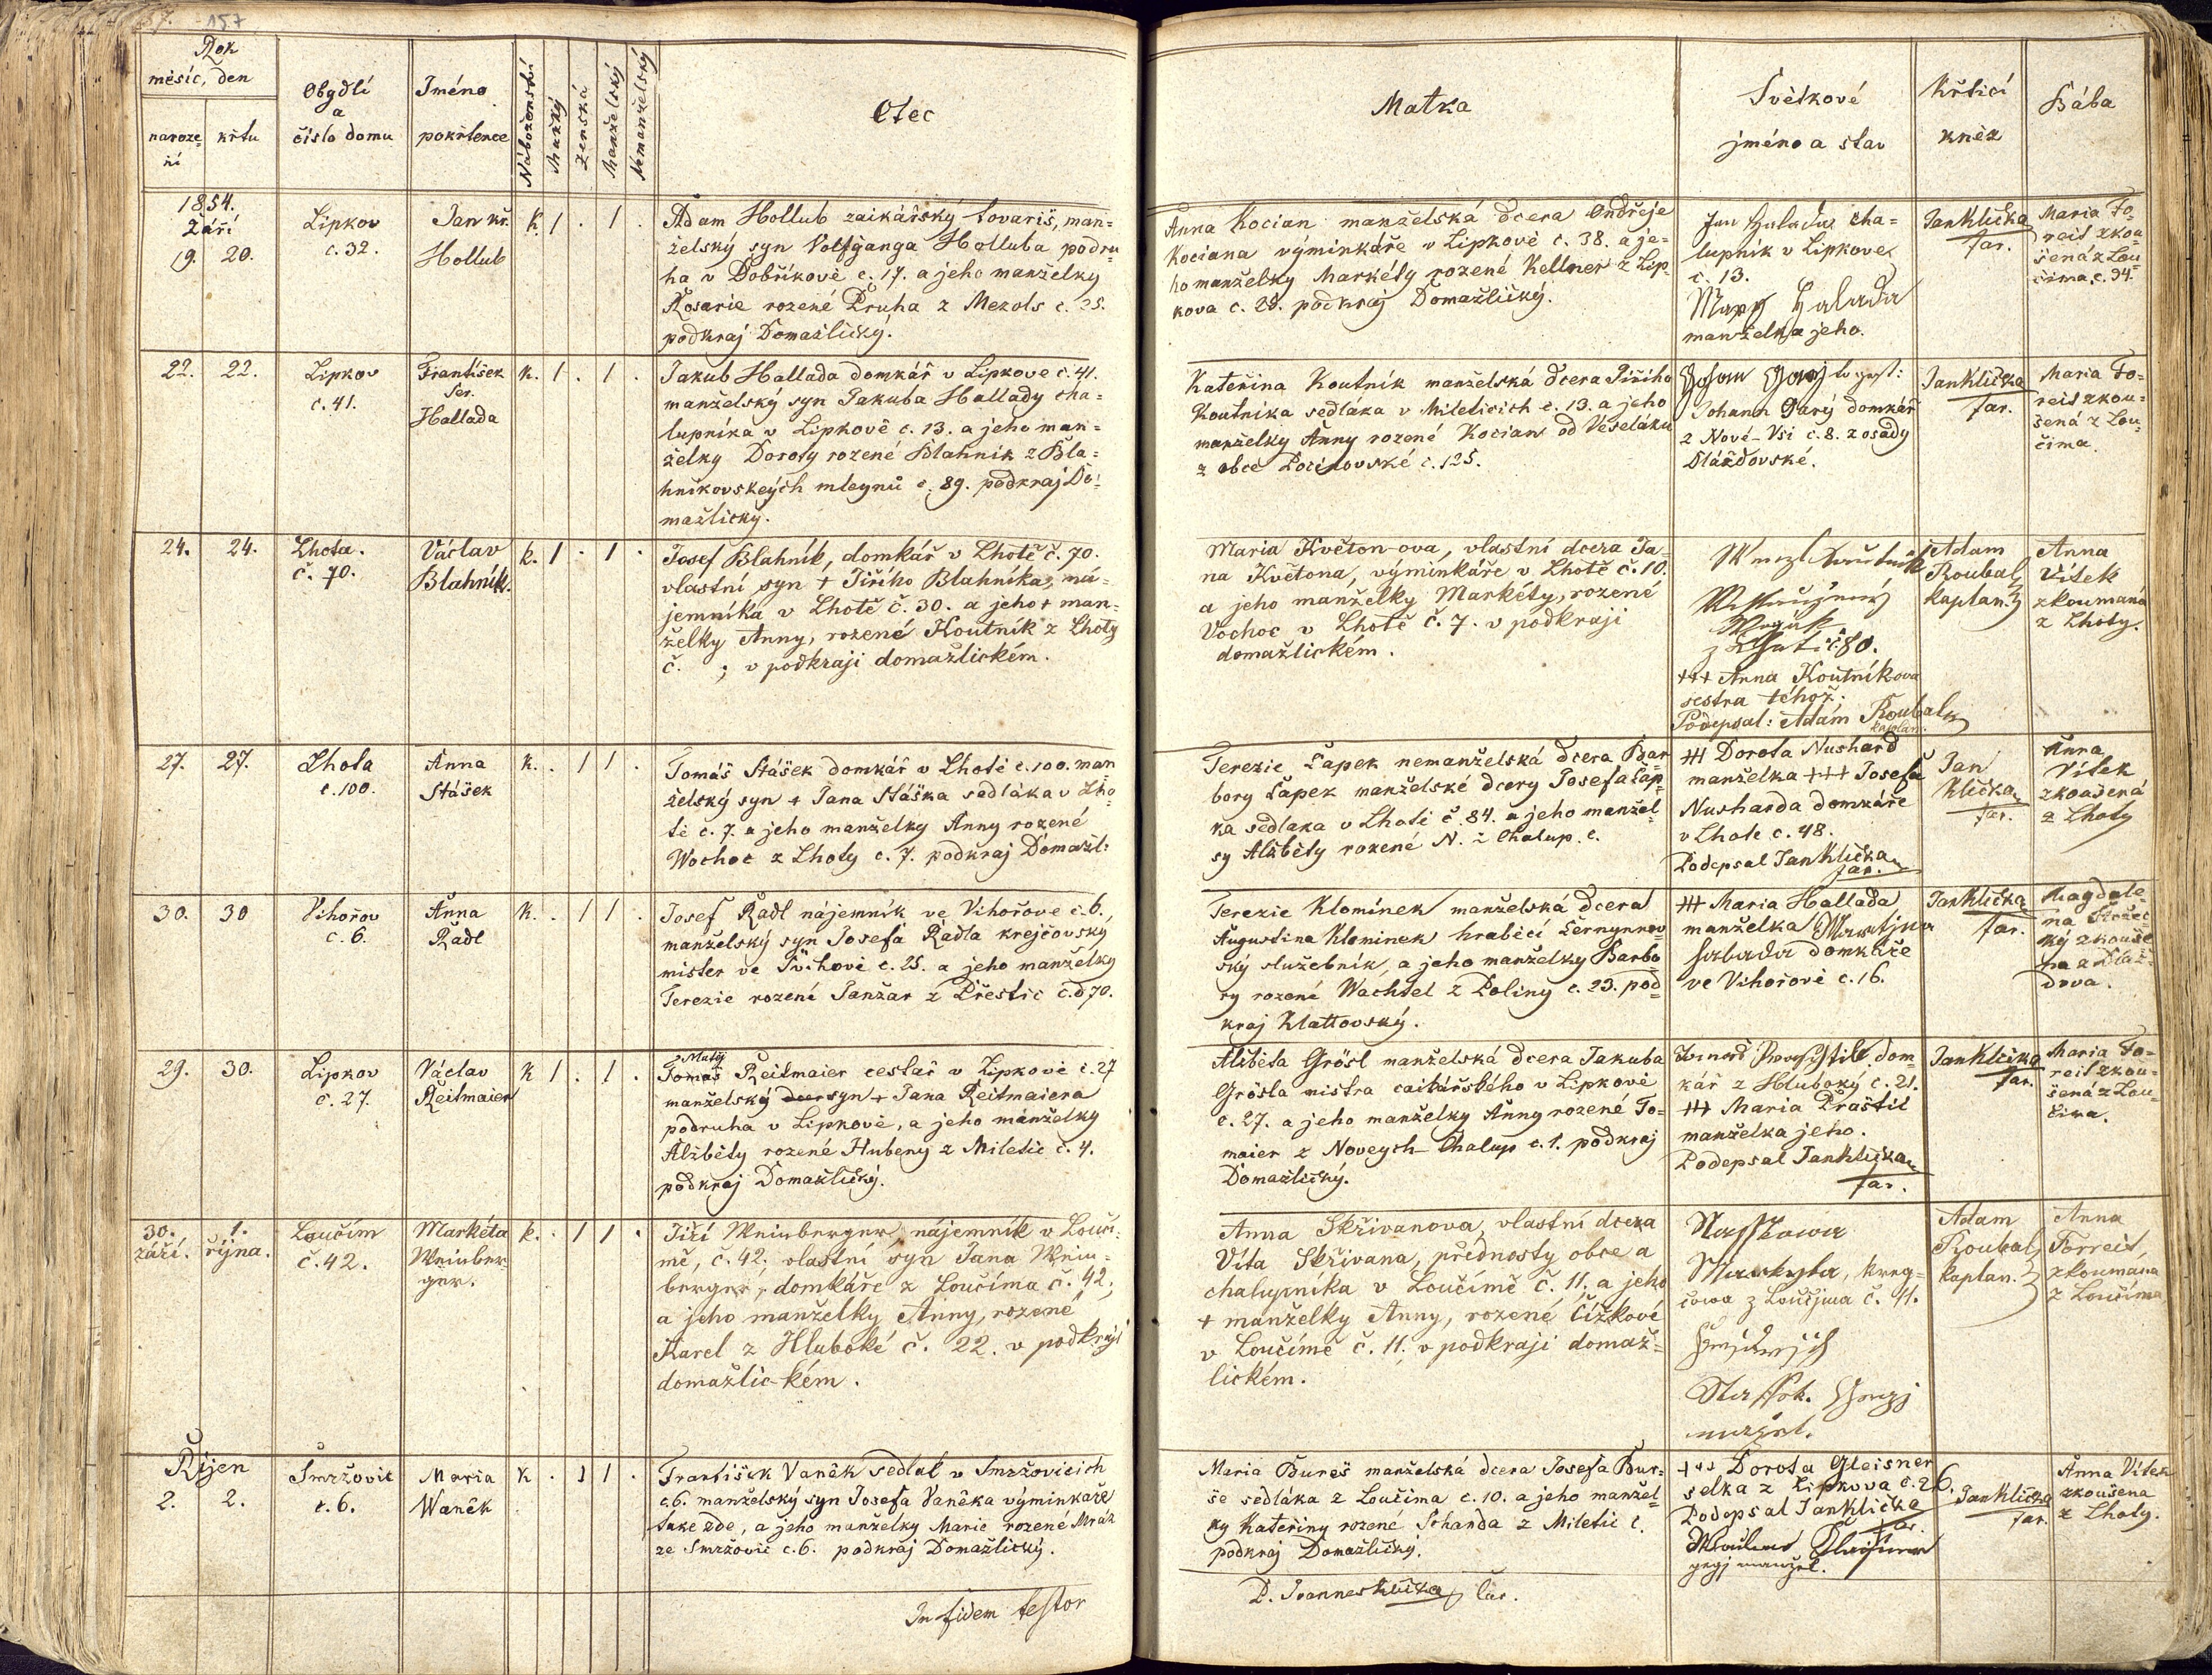 157
Rok
měsíc, den
naroze=
ní
křtu
Obydlí
a
číslo domu
Jméno
pokřtence
Náboženství
Mužský
Ženská
Manželský
Nemanželský
Otec
Matka
Svědkové
jméno a stav
Křtící
kněz
Bába
1854.
Září
19. 20.
Lipkov
č. 32.
Jan kř.
Hollub
k. 1 . 1 .
Adam Hollub zaikářský tovariš, man=
želský syn Volfganga Holluba podru=
ha v Dobříkově č. 17. a jeho manželky
Rosarie rozené Pruha z Mezols č. 25.
podkraj Domažlický.
Anna Kocian manželská dcera Ondřeje
Kociana výminkáře v Lipkově č. 38. a je=
ho manželky Markéty rozené Kellner z Lip=
kova č. 28. podkraj Domažlický.
Jan Halada cha=
lupník v Lipkove
č. 13.
Mary Halada
manželka jeho.
Jan Klička
far.
Maria Fo=
reit zkou=
šená z Lou
čima č. 94.
22. 22.
Lipkov
č. 41.
František
Ser.
Hallada
k. 1 . 1 .
Jakub Hallada domkář v Lipkove č. 41.
manželský syn Jakuba Hallady cha=
lupníka v Lipkově č. 13. a jeho man=
želky Doroty rozené Blahnik z Bla=
hníkovskeých mleynů č. 89. podkraj Do=
mažlický.
Kateřina Koutník manželská dcera Jiřího
Koutníka sedláka v Mileticích č. 13. a jeho
manželky Anny rozené Kocian od Veseláku
z obce Pocinovské č. 125.
Johann Garý domkář
z Nové-Vsi č. 8. z osady
Dlážďovské.
Jan Klička
far.
Maria Fo=
reit zkou=
šená z Lou
čima.
24. 24.
Lhota.
č. 70.
Václav
Blahník.
k. 1 . 1 .
Josef Blahník, domkář v Lhotě č. 70.
vlastní syn + Jiřího Blahníka, ná=
jemníka v Lhotě č. 30. a jeho + man=
želky Anny, rozené Koutník z Lhoty
č. ; v podkraji domažlickém.
Maria Květon-ova, vlastní dcera Ja=
na Květona, výminkáře v Lhotě č. 10.
a jeho manželky Markéty, rozené
Vochoc v Lhotě č. 7. v podkraji
domažlickém.
č 80.
+++ Anna Koutníkova
sestra téhož.
Podepsal: Adam Roubal
kaplan.
Adam
Roubal
kaplan.
Anna
Vítek
zkoumaná
z Lhoty.
27. 27.
Lhota
č. 100.
Anna
Stášek
k. . 1 1 .
Tomáš Stášek domkář v Lhotě č. 100. man
želský syn + Jana Stáška sedláka v Lho=
tě č. 7. a jeho manželky Anny rozené
Wochoc z Lhoty č. 7. podkraj Domažl:
Terezie Čapek nemanželská dcera Bar
bory Čapek manželské dcery Josefa Čap=
ka sedlaka v Lhotě č. 84. a jeho manžel=
ky Alžběty rozené N. z Chalup. č.
+++ Dorota Nushard
manželka +++ Josefa
Nusharda domkáře
v Lhote č. 48.
Podepsal Jan Klička
far.
Jan
Klička
far.
Anna
Vítek
zkoušená
z Lhoty
30. 30
Vihořov
č. 6.
Anna
Radl
k. . 1 1 .
Josef Radl nájemník ve Vihořove č. 6.
manželský syn Josefa Radla krejčovský
mister ve Švihově č. 25. a jeho manželky
Terezie rozené Janžar z Přestic č. d 70.
Terezie Klomínek manželská dcera
Augustina Klominek hraběcí Černynnov=
ský služebník, a jeho manželky Barbo
ry rozené Wachtel z Poliny č. 23. pod=
kraj Klattovský.
+++ Maria Hallada
manželka Martjna
Halada domkáře
ve Vihořově č. 16.
Jan Klička
far.
Magdale=
na
ký zkouše
na z Dlaž=
ďova.
29. 30.
Lipkov
č. 27.
Václav
Reitmaier
k 1 . 1 .
Matěj
Tomáš Reitmaier cestař v Lipkově č. 27
manželský dcer syn + Jana Reitmaiera
podruha v Lipkově, a jeho manželky
Alžběty rozené Hubený z Miletic č. 4.
podkraj Domažlický.
Alžběta Grösl manželská dcera Jakuba
Grösla mistra caikářského v Lipkově
č. 27. a jeho manželky Anny rozené To=
maier z Noveych Chalup č. 1. podkraj
Domažlický.
dom
kář z Hluboký č. 21.
+++ Maria Praštil
manželka jeho.
Podepsal Jan Klička
far.
Jan Klička
far.
Maria Fo=
reit zkou=
šená z Lou=
čima.
30. 1.
září. října.
Loučím
č. 42.
Markéta
Weinber=
ger.
k. . 1 1 .
Jiří Weinberger, nájemník v Louči=
mě, č. 42; vlastní syn Jana Wein=
berger, domkáře z Loučíma č. 42;
a jeho manželky Anny, rozené
Karel z Hluboké č. 22. v podkraji
domažlic-kém.
Anna Skřivanova, vlastní dcera
Víta Skřivana, přednosty obce a
chalupníka v Loučímě č. 11. a jeho
+ manželky Anny, rozené Čížkové
v Loučímě č. 11. v podkraji domaž=
lickém.
Markyta, kreg=
čowa z Loučjma č. 11.
Adam
Roubal
kaplan.
Anna
Forreit,
zkoumana
z Loučíma
Říjen
2. 2.
Smržovic
č. 6.
Maria
Waněk
k . 1 1 .
František Vaněk sedlák v Smržovicich
č. 6. manželský syn Josefa Vaněka výminkaře
take zde, a jeho manželky Marie rozené Mráz
ze Smržovic č. 6. podkraj Domažlický.
Maria Bureš manželská dcera Josefa Bur=
še sedláka z Loučima č. 10. a jeho manžel=
ky Kateřiny rozené Schanda z Miletic č.
podkraj Domažlický.
+++ Dorota Gleisner
selka z Lipkova č. 26.
Podepsal Jan Klička
far.
gegj manžel.
Jan Klička
far.
Anna Vítek
zkoušena
z Lhoty.
In fidem testor
P. Joannes Klička Cur.